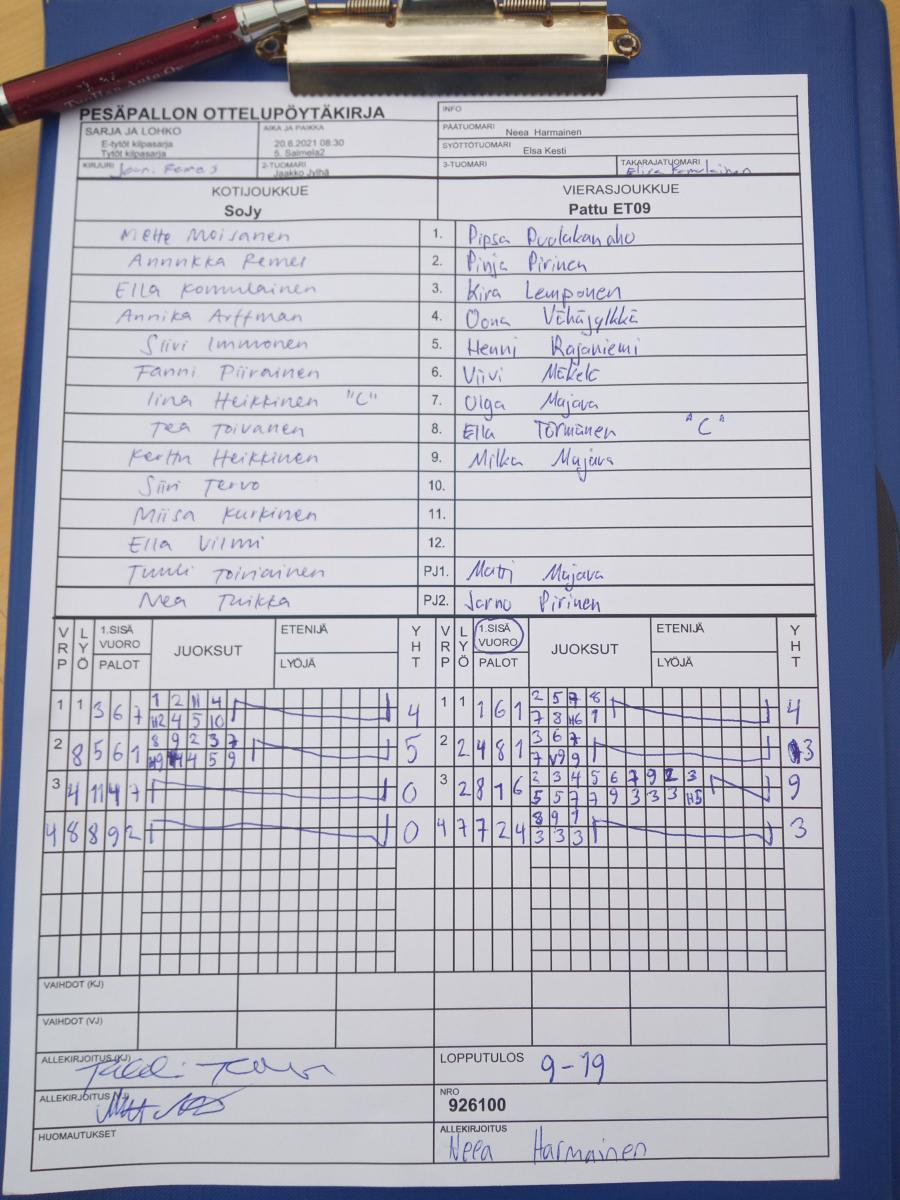 PESÄPALLON OTTELUPÖYTÄKIRJA
INFO
SARJA JA LOHKO
E-tytöt kilpasarja
Tytöt kilpasarja
AIKA JA PAIKKA
20.6.2021 08:30
5. Saimela2
PÄÄTUOMARI
Neea Harmainen
SYÖTTÖTUOMARI
Elsa Kesti
KIRJURI
2-TUOMARI
Jaakko Jylhä
3-TUOMARI
TAKARAJATUOMARI
Elisa Komulainen
KOTIJOUKKUE
SoJy
VIERASJOUKKUE
Pattu ET09
Mette Moisanen 1. Pipsa Puolakanaho
Annukka Remes 2. Pinja Pirinen
Ella Komulainen 3. Kira Lemponen
Annika Arffman 4. Oona Vähäjylkkä
Siivi Immonen 5. Henni Rajaniemi
Fanni Piirainen 6. Viivi Mäkelä
Iina Heikkinen "C" 7. Olga Majava
Tea Toivanen 8. Ella Törmänen "C"
Kerttu Heikkinen 9. Milka Majava
Siiri Tervo 10.
Miisa Kurkinen 11.
Ella Vilmi 12.
Tuuli Toiviainen PJ1. Matti Majava
Nea Tuikka PJ2. Jarno Pirinen
VRP LYÖ 1.SISÄ VUORO PALOT JUOKSUT ETENIJÄ LYÖJÄ YHT VRP LYÖ 1.SISÄ VUORO PALOT JUOKSUT ETENIJÄ LYÖJÄ YHT
1 2 11 4 2 5 7 8
1 1 3 6 7 4 1 1 1 6 1 4
H2 4 5 10 7 8 H6 1
8 9 2 3 7 3 6 7
2 8 5 6 1 5 2 2 4 8 1 3
4 5 9 7 V9 9
2 3 4 5 6 7 9 2 3
3 4 11 4 7 0 3 2 8 1 6 9
5 5 7 7 9 3 3 3 H5
8 9 1
4 8 8 9 2 0 4 7 7 2 4 3
3 3 3
VAIHDOT (KJ)
VAIHDOT (VJ)
ALLEKIRJOITUS (KJ)
LOPPUTULOS
9-19
ALLEKIRJOITUS
NRO
926100
HUOMAUTUKSET
ALLEKIRJOITUS
Neea Harmainen